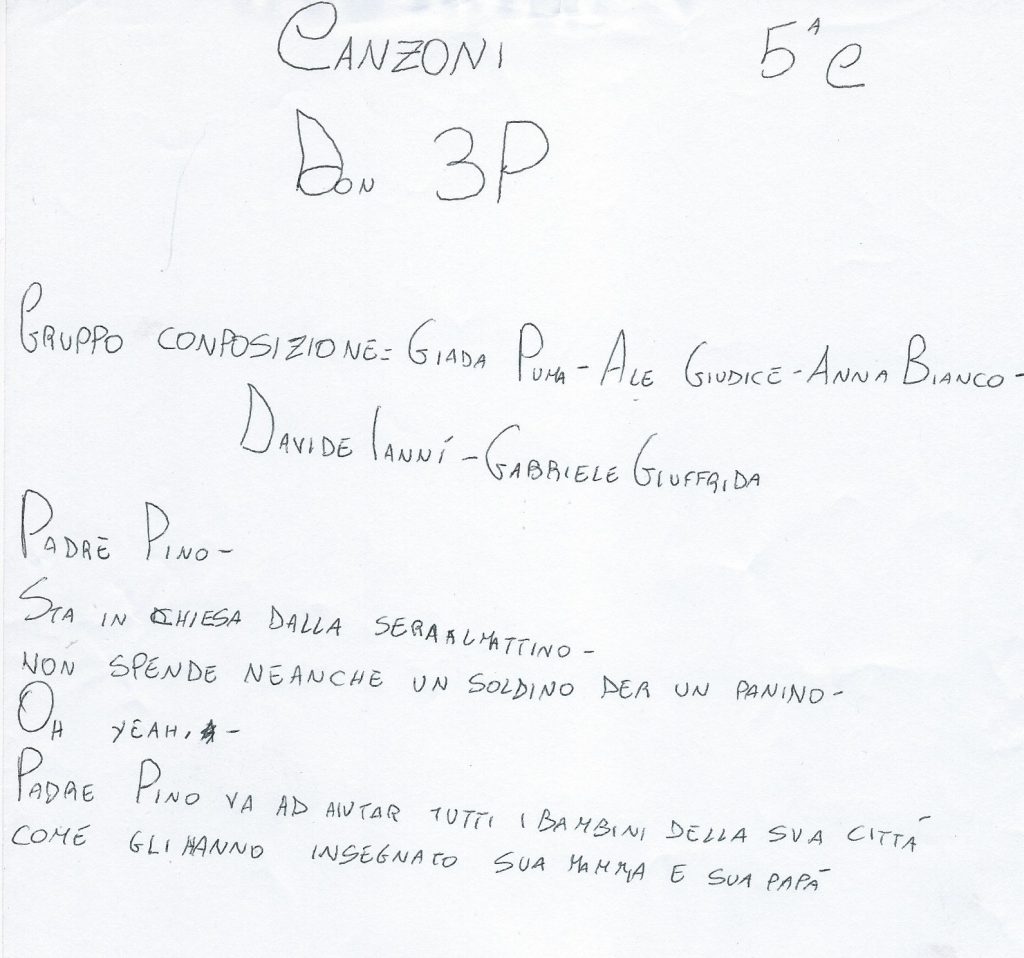 CANZONI 5ᴬ C
DON 3P
GRUPPO CONPOSIZIONE= GIADA PUMA - ALE GIUDICE - ANNA BIANCO -
DAVIDE IANNÍ - GABRIELE GIUFFRIDA
PADRE PINO -
STA IN CHIESA DALLA SERA AL MATTINO -
NON SPENDE NEANCHE UN SOLDINO PER UN PANINO -
OH YEAH, -
PADRE PINO VA AD AIUTAR TUTTI I BAMBINI DELLA SUA CITTÁ
COME GLI HANNO INSEGNATO SUA MAMMA E SUA PAPÁ